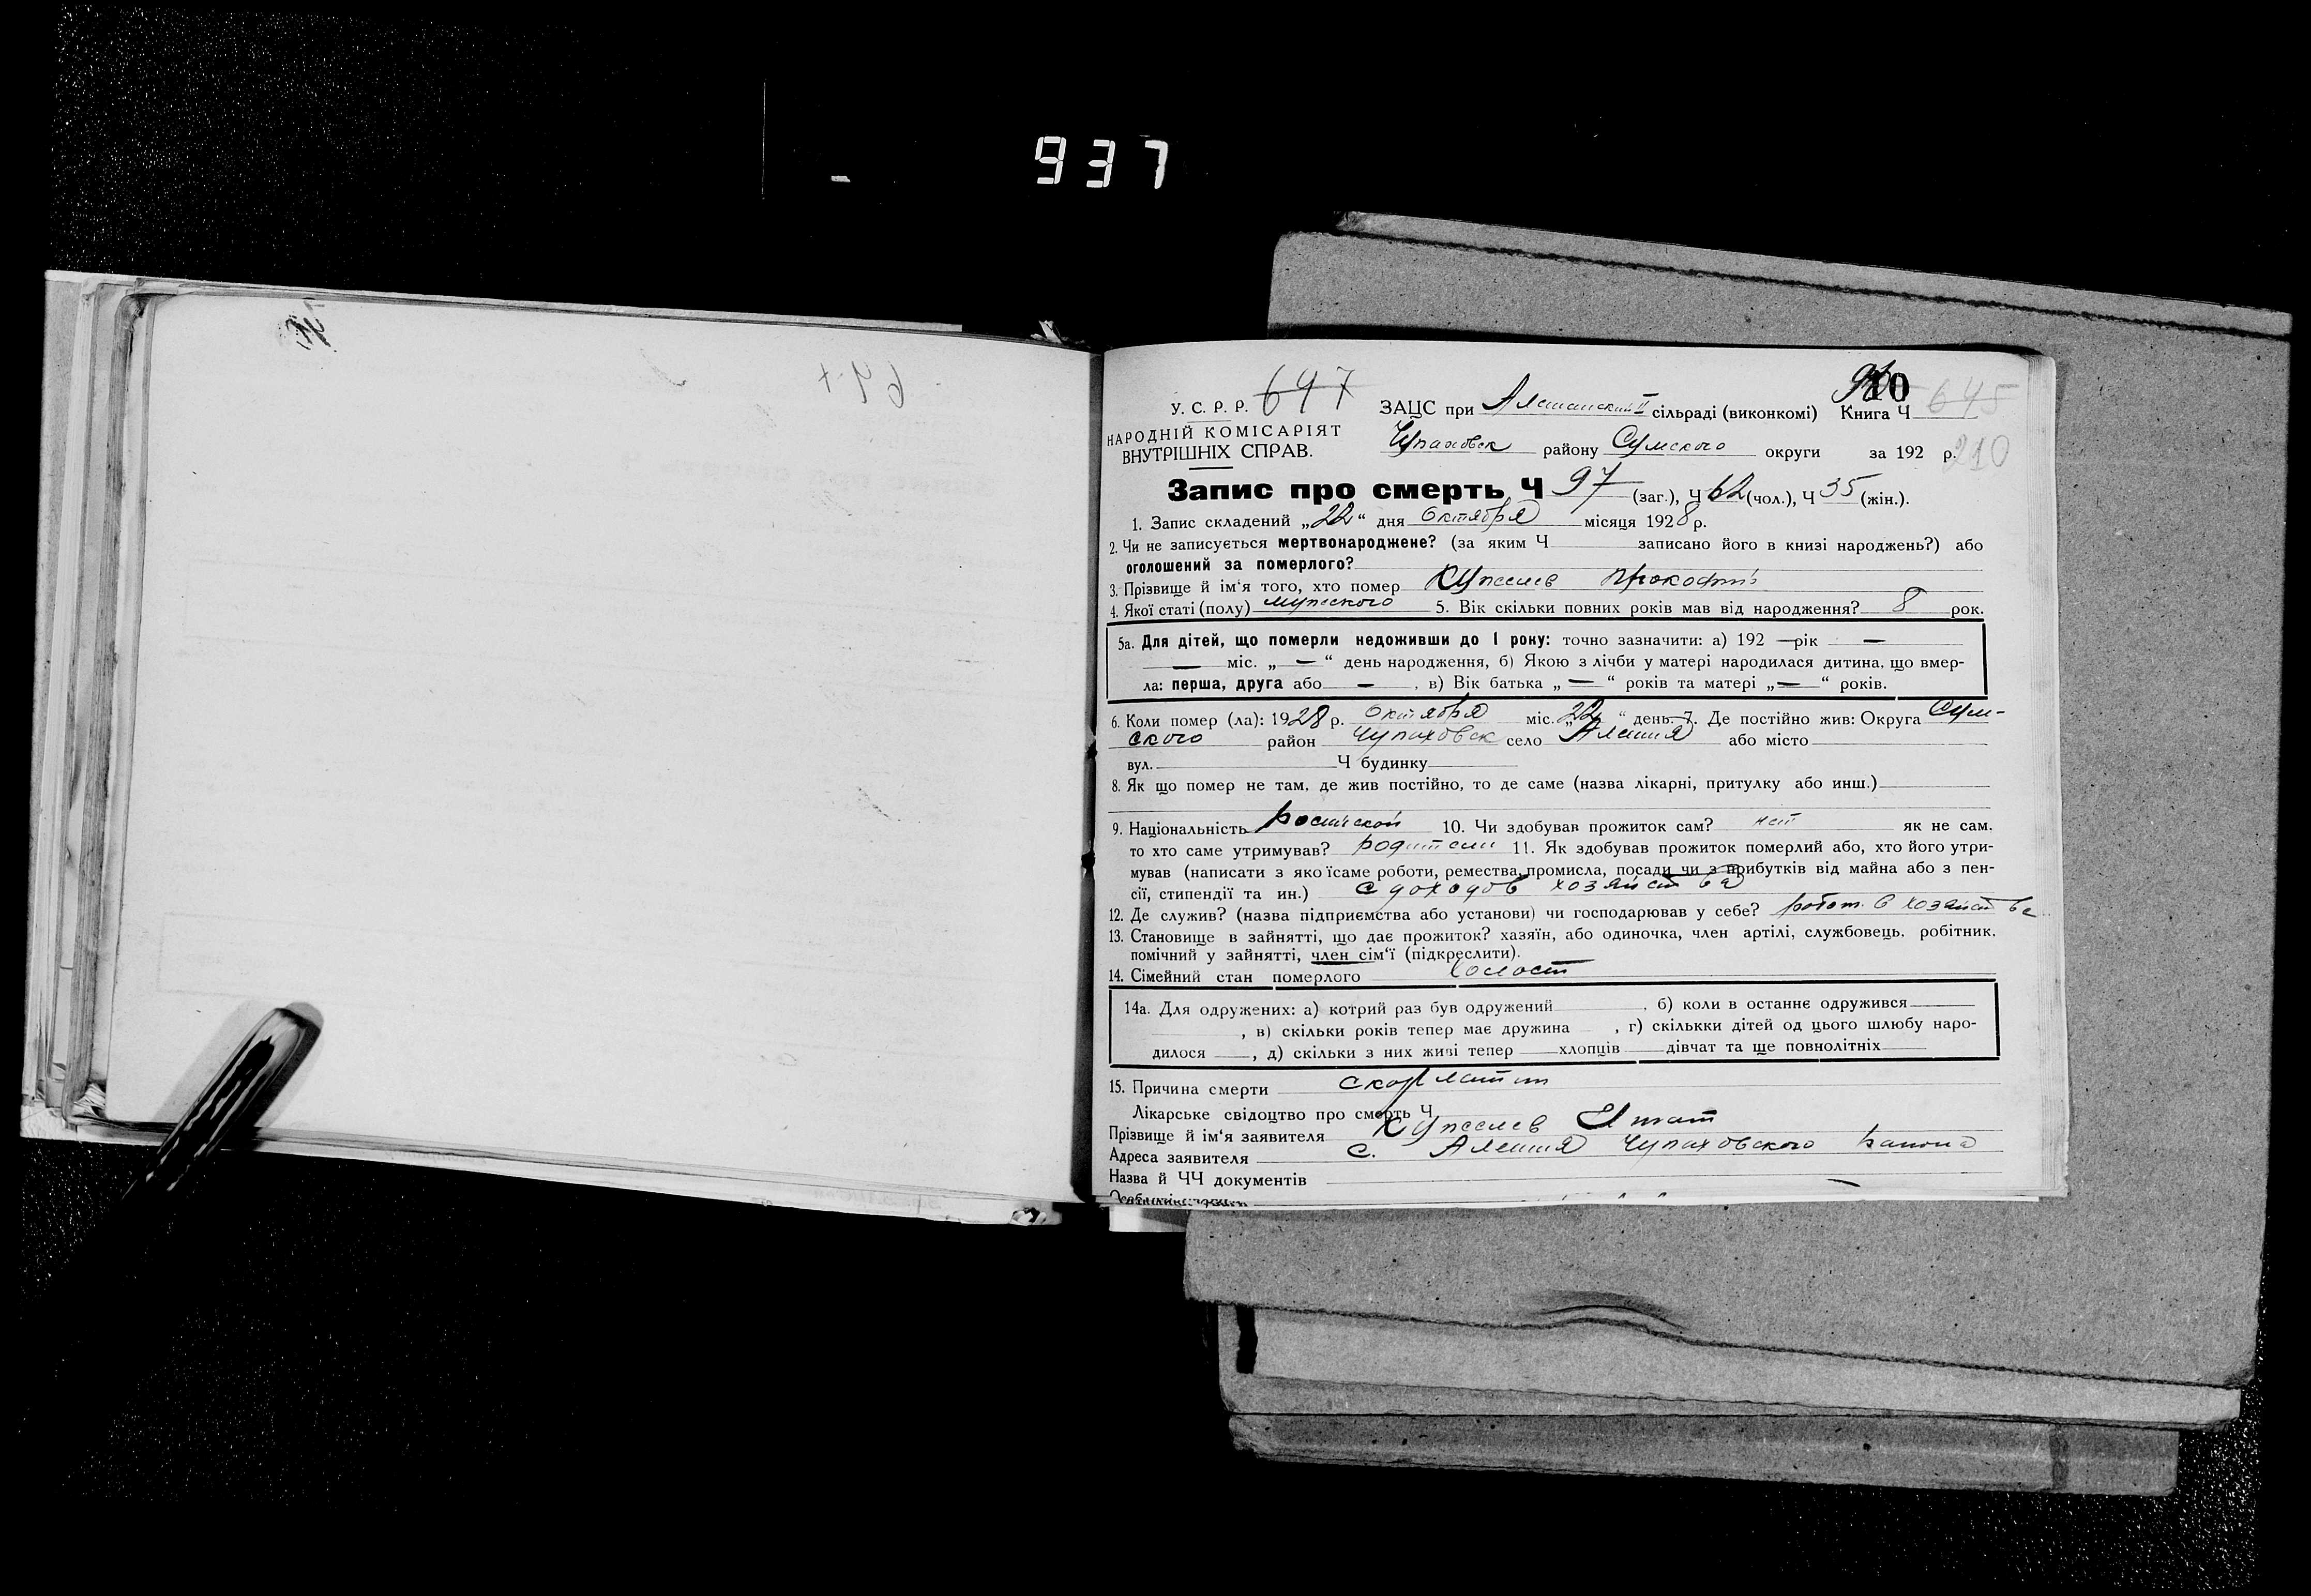 937
697
У. С. Р. Р.
НАРОДНІЙ КОМІСАРІЯТ
ВНУТРІШНІХ СПРАВ.
ЗАЦС при Алешанский II сільраді (виконкомі) Книга Ч 645
Чупаховск району Сумского округи за 192 р. 210
Запис про смерть Ч 97 (заг.), Ч 62 (чол.), Ч 35 (жін.).
1. Запис складений „22“ дня Октября місяця 1928 р.
2. Чи не записується мертвонароджене? (за яким Ч записано його в книзі народжень?) або
оголошений за померлого?
3. Прізвище й ім‘я того, хто помер Кужелев Прокофий
4. Якої статі (полу) мужского 5. Вік скільки повних років мав від народження? 8 рок.
5а. Для дітей, що померли недоживши до 1 року: точно зазначити: а) 192 — рік —
— міс. „ — “ день народження, б) Якою з лічби у матері народилася дитина, що вмер-
ла: перша, друга або — , в) Вік батька „ — “ років та матері „ — “ років.
6. Коли помер (ла): 1928 р. Октября міс. „22“ день. 7. Де постійно жив: Округа Сум-
ского район Чупаховск село Алешня або місто
вул. Ч будинку
8. Як що помер не там, де жив постійно, то де саме (назва лікарні, притулку або инш.)
9. Національність Российской 10. Чи здобував прожиток сам? нет як не сам,
то хто саме утримував? родители 11. Як здобував прожиток померлий або, хто його утри-
мував (написати з якоїсаме роботи, ремества, промисла, посади чи з прибутків від майна або з пен-
сії, стипендії та ин.) с доходов хозяйства
12. Де служив? (назва підприємства або установи) чи господарював у себе? работ. в хозяйстве
13. Становище в зайнятті, що дає прожиток? хазяїн, або одиночка, член артілі, службовець, робітник,
помічний у зайнятті, член сім‘ї (підкреслити).
14. Сімейний стан померлого холост
14а. Для одружених: а) котрий раз був одружений , б) коли в останнє одружився
, в) скільки років тепер має дружина , г) скількки дітей од цього шлюбу наро-
дилося , д) скільки з них живі тепер хлопців дівчат та ще повнолітніх
15. Причина смерти скарлатин
Лікарське свідоцтво про смерть Ч
Прізвище й ім‘я заявителя Кужелев Игнат
Адреса заявителя с. Алешня Чупаховского Района
Назва й ЧЧ документів